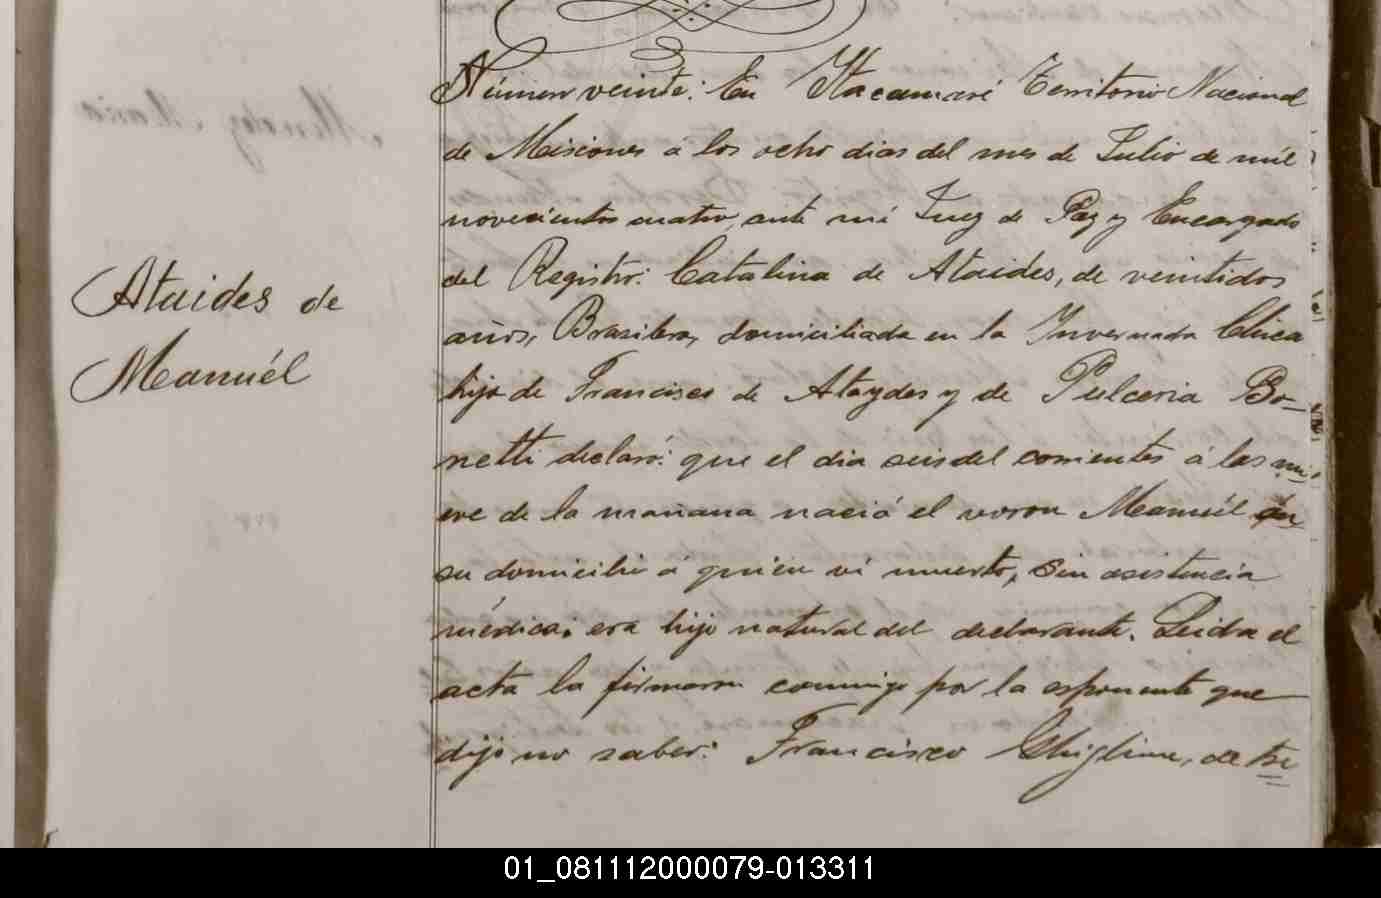 Ataides de
Manuél
Número veinte: En Itacaruaré Territorio Nacional
de Misiones á los ocho dias del mes de Julio de mil
novecientos cuatro, ante mí Juez de Paz y Encargado
del Registro: Catalina de Ataides, de veintidos
años, Brasilera, domiciliada en la Invernada Chica
hija de Francisco de Ataydes y de Pulceria Bo-
netti declaró: que el dia seis del corrientes á las nu-
eve de la mañana nació el varon Manuél en
su domicilio á quien vi muerto, sin asistencia
médica. era hijo natural del declarante. Leida el
acta la firmaron conmigo por la esponente que
dijo no saber: Francisco Ghiglione, de tre
01_081112000079-013311